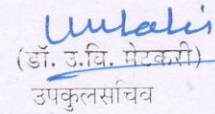 (डॉ. उ.वि. मेटकरी)
उपकुलसचिव